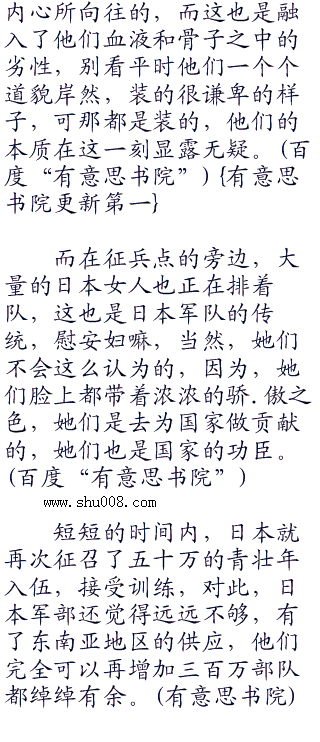 内心所向往的，而这也是融
入了他们血液和骨子之中的
劣性，别看平时他们一个个
道貌岸然，装的很谦卑的样
子，可那都是装的，他们的
本质在这一刻显露无疑。(百
度“有意思书院”) {有意思
书院更新第一}
而在征兵点的旁边，大
量的日本女人也正在排着
队，这也是日本军队的传
统，慰安妇嘛，当然，她们
不会这么认为的，因为，她
们脸上都带着浓浓的骄.傲之
色，她们是去为国家做贡献
的，她们也是国家的功臣。
(百度“有意思书院”)
www.shu008.com
短短的时间内，日本就
再次征召了五十万的青壮年
入伍，接受训练，对此，日
本军部还觉得远远不够，有
了东南亚地区的供应，他们
完全可以再增加三百万部队
都绰绰有余。(有意思书院)